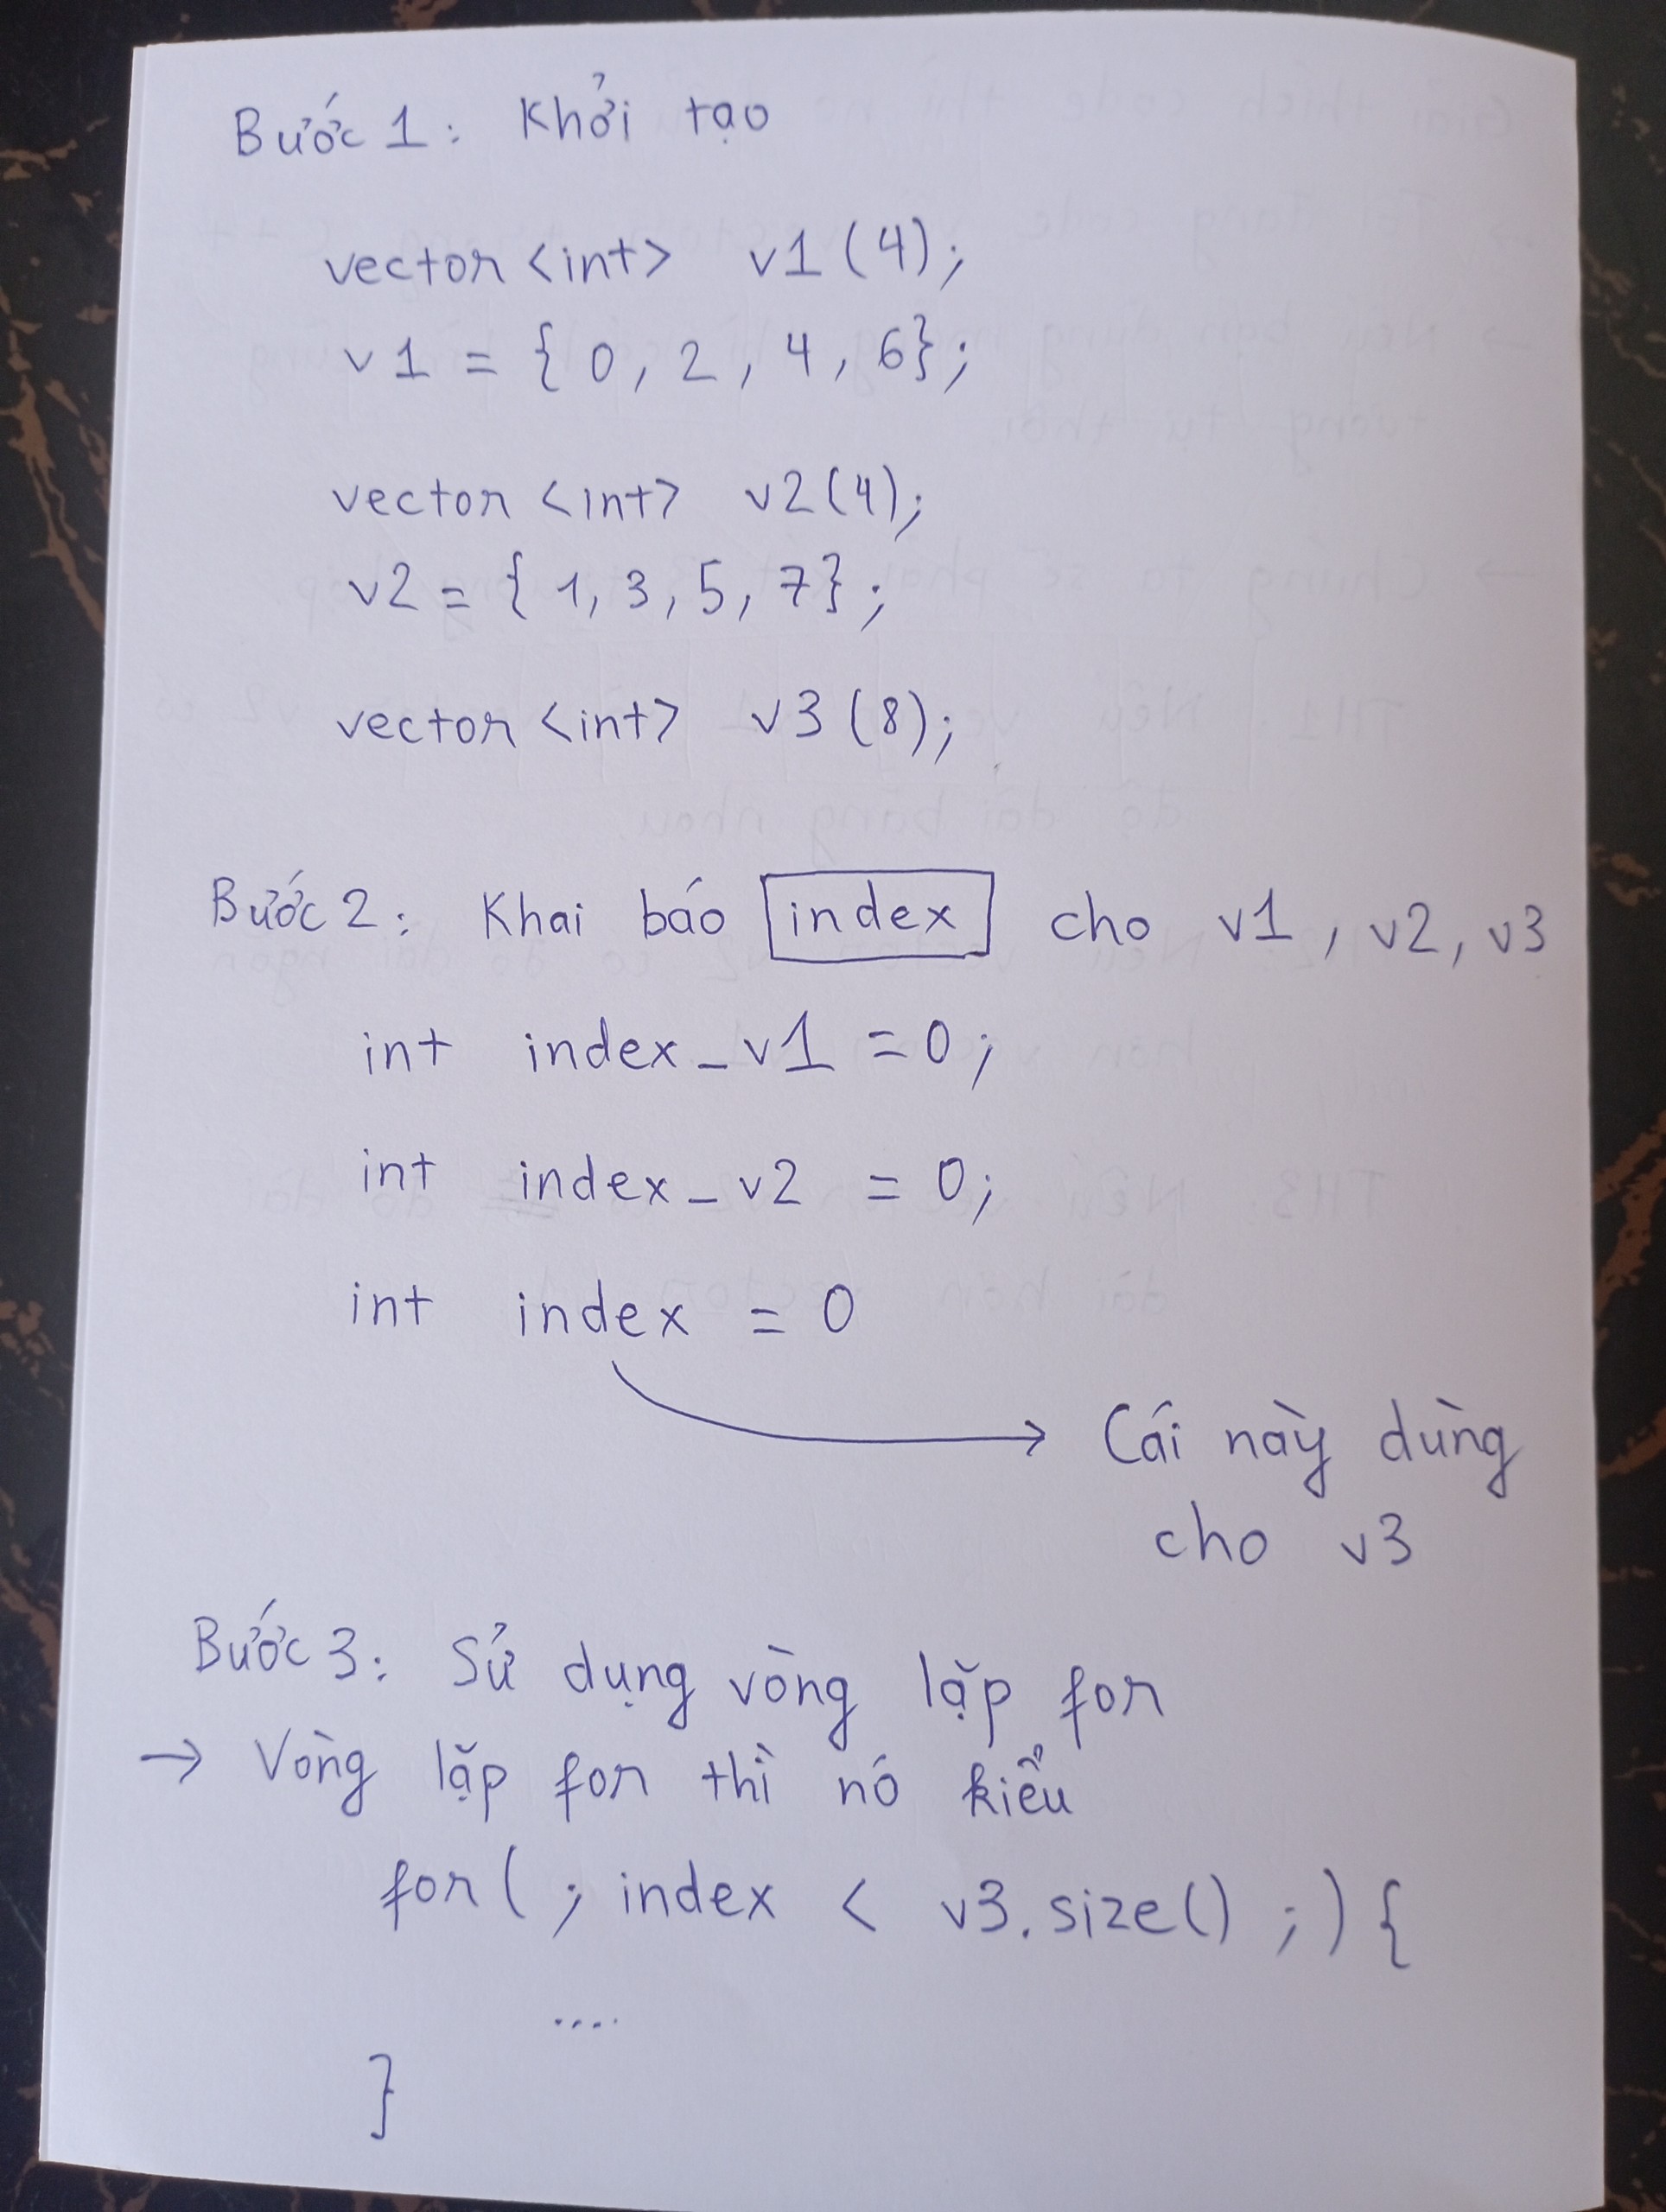 Bước 1: Khởi tạo
vector <int> v1 (4);
v1 = {0, 2, 4, 6};
vector <int> v2(4);
v2 = {1, 3, 5, 7};
vector <int> v3 (8);
Bước 2: Khai báo index cho v1, v2, v3
int index_v1 = 0;
int index_v2 = 0;
int index = 0
→ Cái này dùng
cho v3
Bước 3: Sử dụng vòng lặp for
→ Vòng lặp for thì nó kiểu
for( ; index < v3.size() ; ) {
....
}